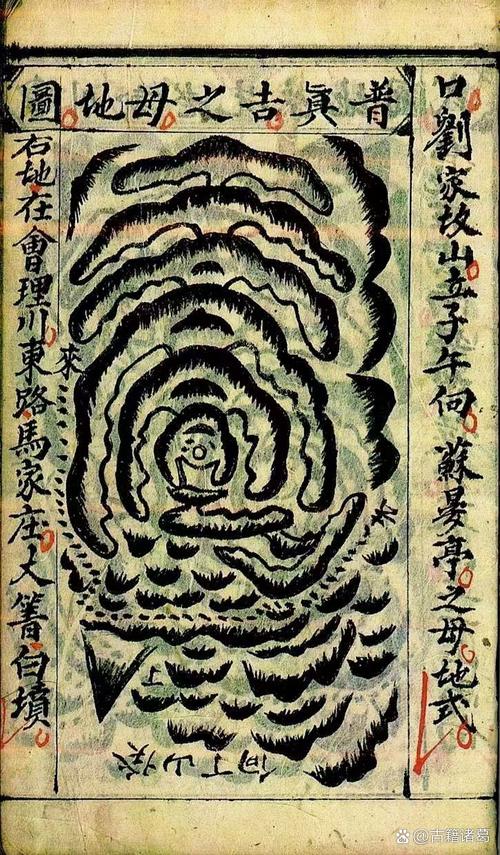 口劉家坟山立子午向蘇晏亭之母地式
普眞吉之母地圖
右地在會理川東路馬家庄大箐白墳
來
丁
癸山丁向
古籍诸葛